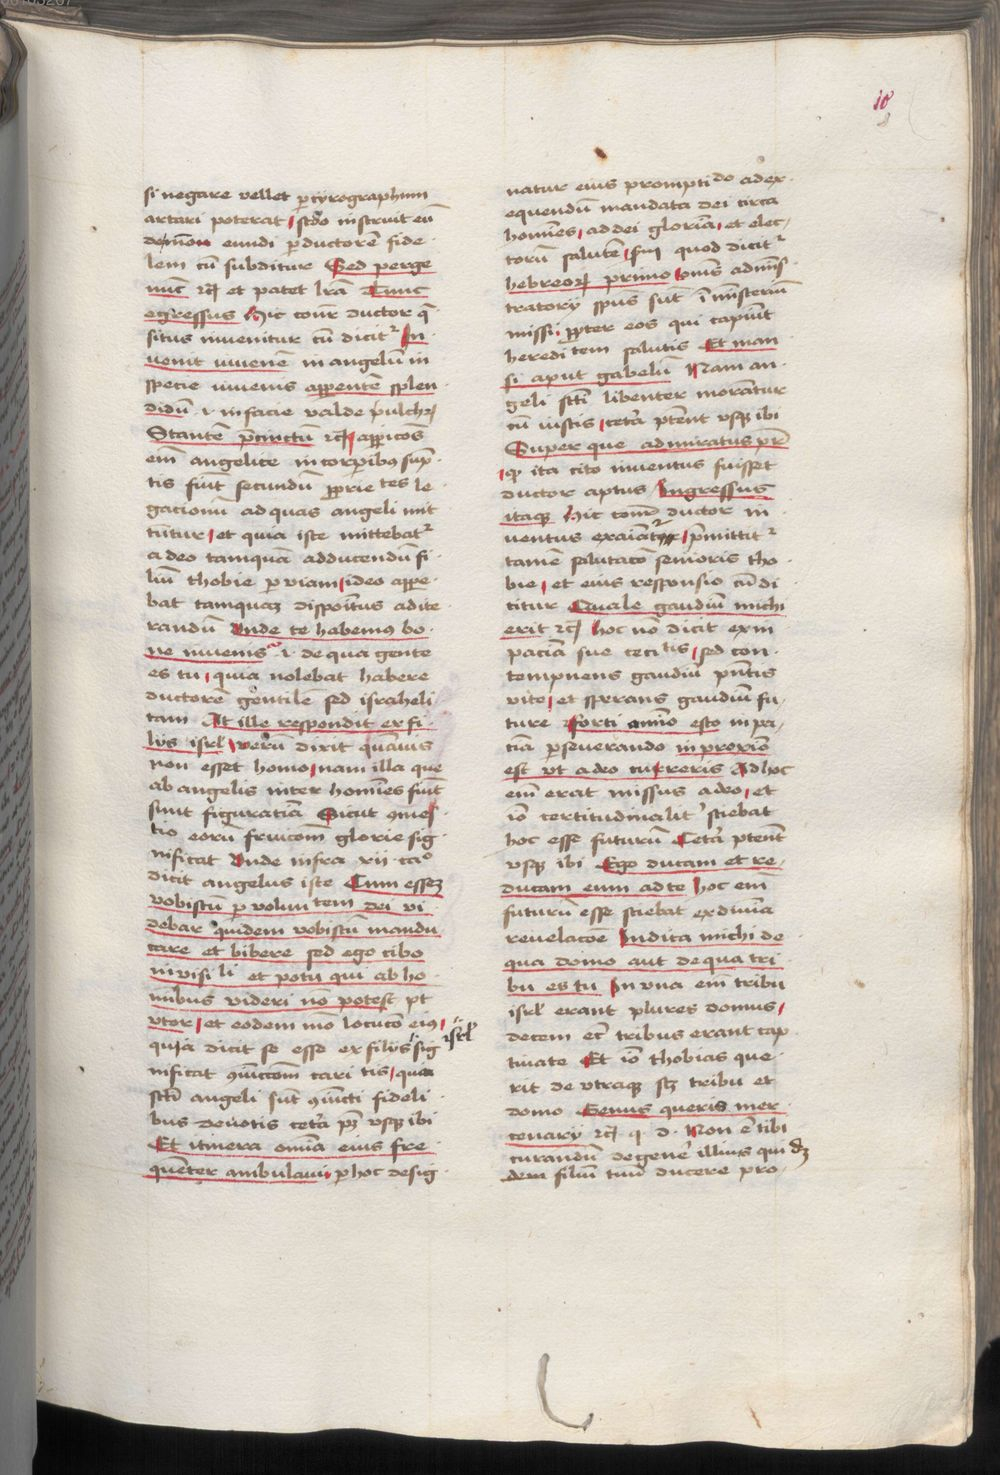 10
si negare vellet p cyrographum
artari poterat, scdo instruit eū
de mōn eundi p ductorē fide
lem cū subditur Sed perge
nūc rc̄ et patet lrā Tunc
egressus Hic cōnr ductor q̄
situs invenitur cū dicit In
venit iuvenē in angelū in
specie iuvenis apparentē splen
didū .i. in facie valde pulchr
Stantē p̄cinctū rc̄ apparicōs
em̄ angelice in corporibꝰ sup
tis fiūt secundū proprie tes le
gacionū ad quas angeli mit
tūtur, et quia iste mittebat
a deo tamquā adducendū fi
liū thobie p viam, ideo appe
bat tamquaʒ dispositus ad ite
randū Unde te habemꝰ bo
ne iuvenis .i. de qua gente
es tu, quia nolebat habere
ductorē gentilē sed israheli
tam At ille respondit ex fi
liis isrl̄ verū dixit quāuis
non esset homo, nam illa que
ab angelis inter homīes fiūt
sunt figuratīa Sicut 9mes
tio eorū fruicōm glorie sig
nificat Unde infra xii cᵒ
dicit angelus iste Cum esseʒ
vobiscū p volun tem dei vi
debar quidem vobiscū mandu
care et bibere sed ego cibo
invisi li et potu qui ab ho
mībus videri nō potest pt
vtor, et eodem mō locucō eiꝰ,
quia dicit se esse ex filiis sig isrl̄
nificat 9iūccōem cari tis, quia
scti angeli sūt 9iūcti fideli
bus devotis cetā pʒ vsqʒ ibi
Et itinera omīa eius fre
quēter ambulavi, p hoc desig
natur eius prompti do ad ex
equendū mandata dei circa
homīes, ad dei gloriā, et elec
torū salutē, sm̄ quod dicit
hebreorꝝ primo, om̄s admis
tratorii spūs sūt ī mīsteriū
missi, ppter eos qui capiūt
heredi tem salutis Et man
si aput gabelū Nam an
geli scti libenter morantur
cū iustis, cetā ptent vsqʒ ibi
Super que admiratus pr̄
, qͥ ita cito inventus fuisset
ductor aptus Ingressus
itaqʒ Hic cōnr ductor in
ventus exaiāt, p̄mittit
tamē salutacō senioris tho
bie, et eius responsio cū di
titur Quale gaudiū michi
erit rc̄ Hoc nō dicit ex in
paciā sue ceci tis, sed con
tempnens gaudiū pn̄tis
vite, et sperans gaudiū fu
ture Forti animo esto in pa
tiā pseverando in proxīo
est vt a deo cureris Ad hoc
em̄ erat missus a deo, et
iō certitudinalit sciebat
hoc esse futurū Cetā ptent
vsqʒ ibi Ego ducam et re
ducam eum ad te Hoc em̄
futurū esse sciebat ex divīa
revelacōe Indica michi de
qua domo aut de qua tri
bu es tu In vna em̄ tribu
isrl̄ erant plures domus,
decem etī tribus erant cap
tivate Et iō thobias que
rit de vtraqʒ scʒ tribu et
domo Genus queris mer
cenarii rc̄ q. d. Non ē tibi
curandū de genē illius qui dʒ
dem filiū tuū ducere pro